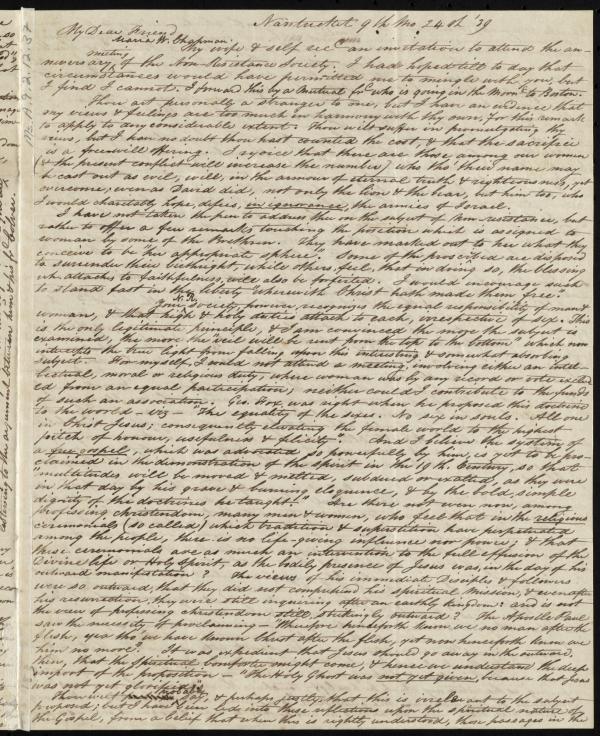 Nantucket 9th Mo. 24th '39
My Dear Friend
Maria W. Chapman.
Thy wife & self rec'd an invitation to attend the an-
meeting
niversary of the Non-Resistance Society. I had hoped till to day that
circumstances would have permitted me to mingle with you, but
I find I cannot. I forward this by a mutual fr'd who is going in the Morn'g to Boston.
Thou art personally a stranger to me, but I have an evidence that
my views & feelings are too much in harmony with thy own, for this remark
to apply to any considerable extent. Thou wilt suffer in promulgating thy
views, but I have no doubt thou hast counted the cost, & that the sacrifice
is a freewill offering. I rejoice that there are those among our women
(& the present conflict will increase the number) who tho' their name may
be cast out as evil, will, in the armour of eternal truth & righteousness, yet
overcome, even as David did, not only the lion & the bear, but him too, who
I would charitably hope, defies, in ignorance, the armies of Israel.
I have not taken the pen to address thee on the subject of Non-resistance, but
rather to offer a few remarks touching the position which is assigned to
woman by some of the Brethren. They have marked out to her what they
conceive to be "her appropriate sphere". Some of the proscribed are disposed
to surrender their birthright, while others feel, that in doing so, the blessing
wh. attaches to faithfulness, will also be forfeited. I would encourage such
to "stand fast in the liberty wherewith Christ hath made them free."
N. R.
Your Society, however, recognizes the equal responsibility of man &
woman, & that high & holy duties attach to each, irrespective of sex. This
is the only legitimate principle, & I am convinced the more the subject is
examined, the more the veil will be "rent from the top to the bottom" which now
intercepts the true light from falling upon this interesting & somewhat absorbing
subject. For myself, I would not attend a meeting, involving either an intel-
lectual, moral or religious duty, where woman was by any record or vote exclud-
ed from an equal participation; neither could I contribute to the funds
of such an association. Geo. Fox was right when he proposed this doctrine
to the world — viz — "The equality of the sexes. No sex in souls. All one
in Christ Jesus; consequently elevating the female world to the highest
pitch of honour, usefulness & felicity". And I believe the system of
a free gospel, which was advocated so powerfully by him, is yet to be pro-
claimed in the demonstration of the spirit in the 19th Century, so that
multitudes will be moved & melted, subdued or exalted, as they were
in that day by his grave & burning eloquence, & by the bold, simple
dignity of the doctrines he taught. Are there not even now, among
professing christendom, many men & women, who feel that in the religious
ceremonials (so called) which tradition & superstition have perpetuated
among the people, there is no life-giving influence nor power; & that
these ceremonials are as much an intervention to the full effusion of the
Divine life or Holy Spirit, as the bodily presence of Jesus was, in the day of his
outward manifestation? The views of his immediate Disciples & followers
were so outward, that they did not comprehend his spiritual Mission, & even after
his resurrection, they were still inquiring after an earthly kingdom: and is not
the view of professing christendom still, too truly outward? The Apostle Paul
saw the necessity of proclaiming — "Wherefore henceforth know we no man after the
flesh, yea tho' we have known Christ after the flesh, yet now henceforth know we
him no more". It was expedient that Jesus should go away in the outward,
then, that the Spiritual comforter might come, & hence we understand the deep
import of the proposition — "The Holy Ghost was not yet given, because that Jesus
was not yet glorified."
Thou wilt probably say, & perhaps justly, that this is irrelevant to the subject
proposed; but I have been led into these reflections upon the spiritual nature of
the Gospel, from a belief that when this is rightly understood, those passages in the